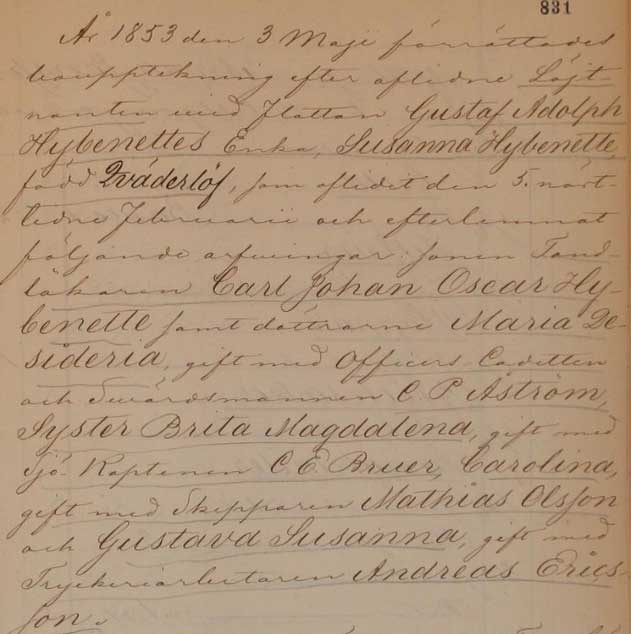 831
År 1853 den 3 Maje förrättades
bouppteckning efter aflidne Löjt-
nanten vid Flottan Gustaf Adolph
Hybenettes Enka, Susanna Hybenette,
född Qväderlöf, som aflidet den 5. näst-
ledne Februarii och efterlemnat
följande arfvingar: sonen Tand-
läkaren Carl Johan Oscar Hy-
benette samt döttrarne Maria De-
sideria, gift med Officers-Cadetten
och Swärdsmannen C. P. Åström,
Syster Brita Magdalena, gift med
Sjö-Kaptenen C. E. Bruer, Carolina,
gift med Skepparen Mathias Olsson
och Gustava Susanna, gift med
Tryckeriarbetaren Andreas Erics-
son.